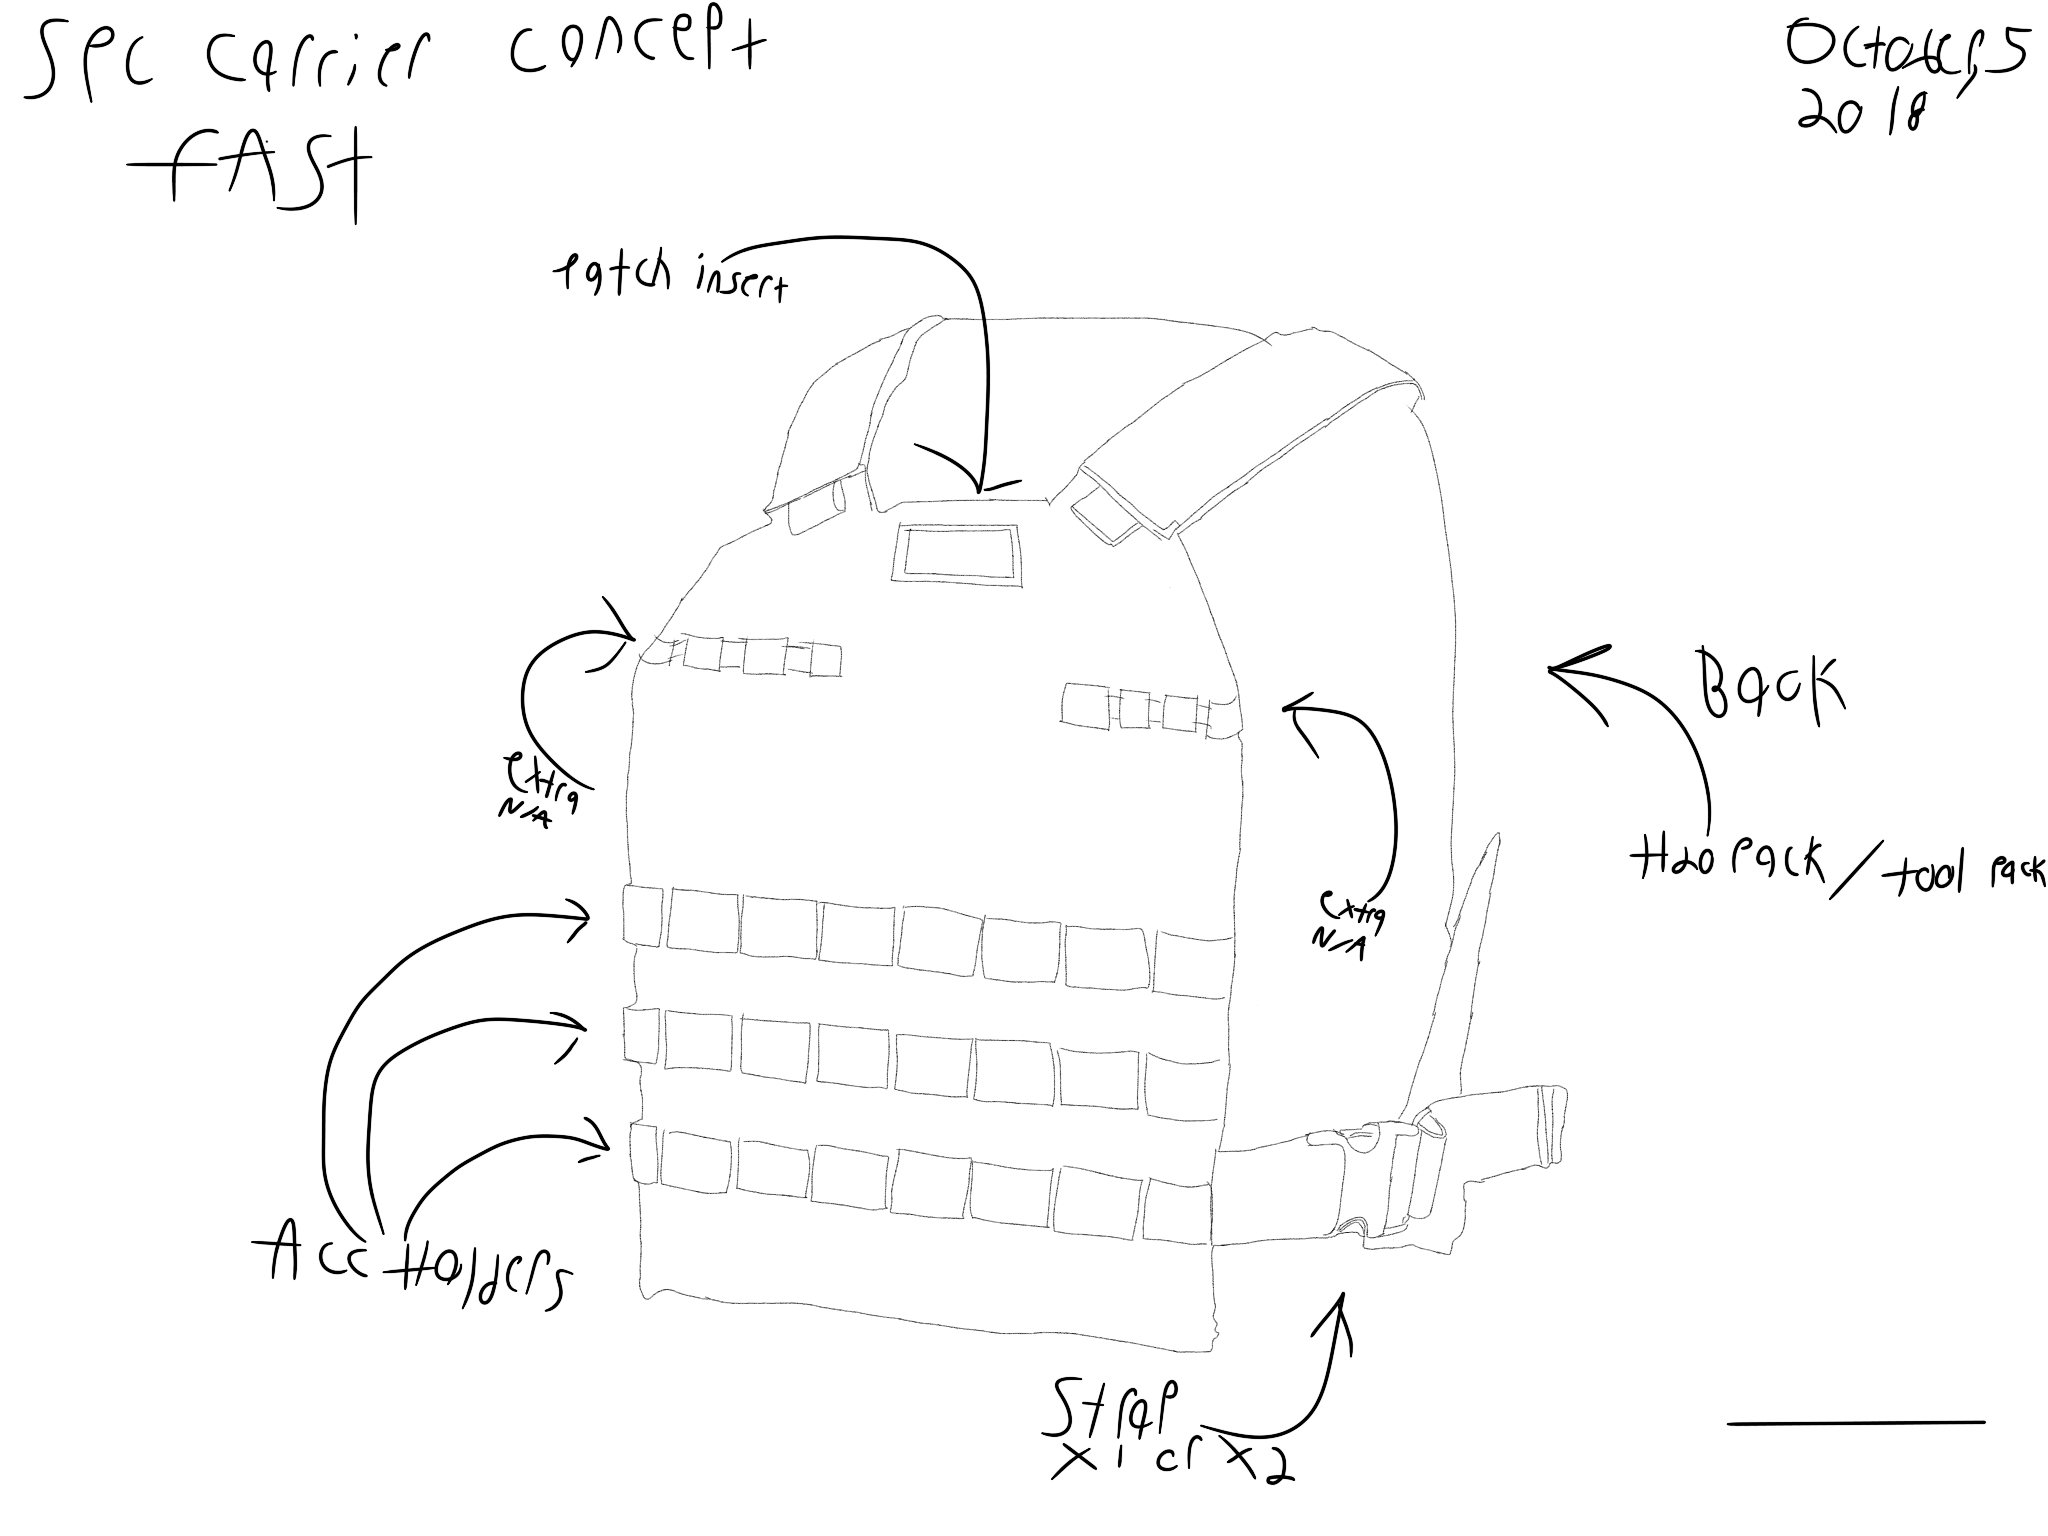 Spc carrier concept
FAST
October, 5
2018
Patch insert
Back
extra
N/A
H2O Pack / tool pack
extra
N/A
Acc Holders
Strap
x1 or x2